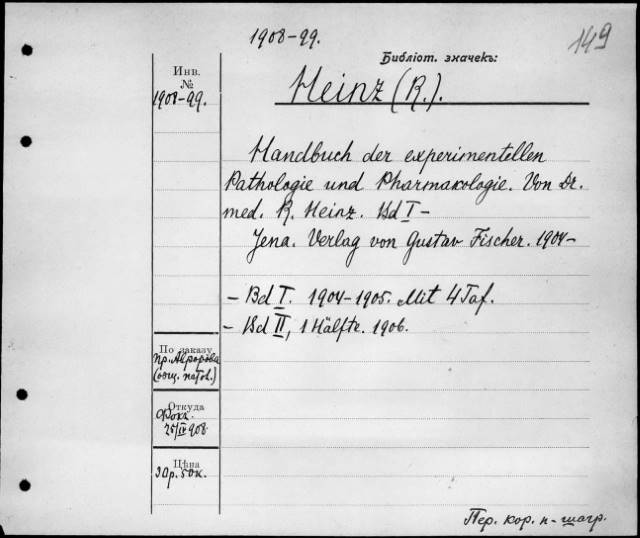 1908-99.
149
Библіот. значекъ:
Инв.
№
1908-99.
Heinz (R.).
Handbuch der experimentellen
Pathologie und Pharmakologie. Von Dr.
med. R. Heinz. Bd I -
Jena. Verlag von Gustav Fischer. 1904-
- Bd I. 1904-1905. Mit 4 Taf.
- Bd II, 1 Hälfte. 1906.
По заказу
пр. Авророва
(общ. патол.)
Откуда
Фокъ.
25/IV 908
Цѣна
30р. 50к.
Пер. кор. к-шагр.